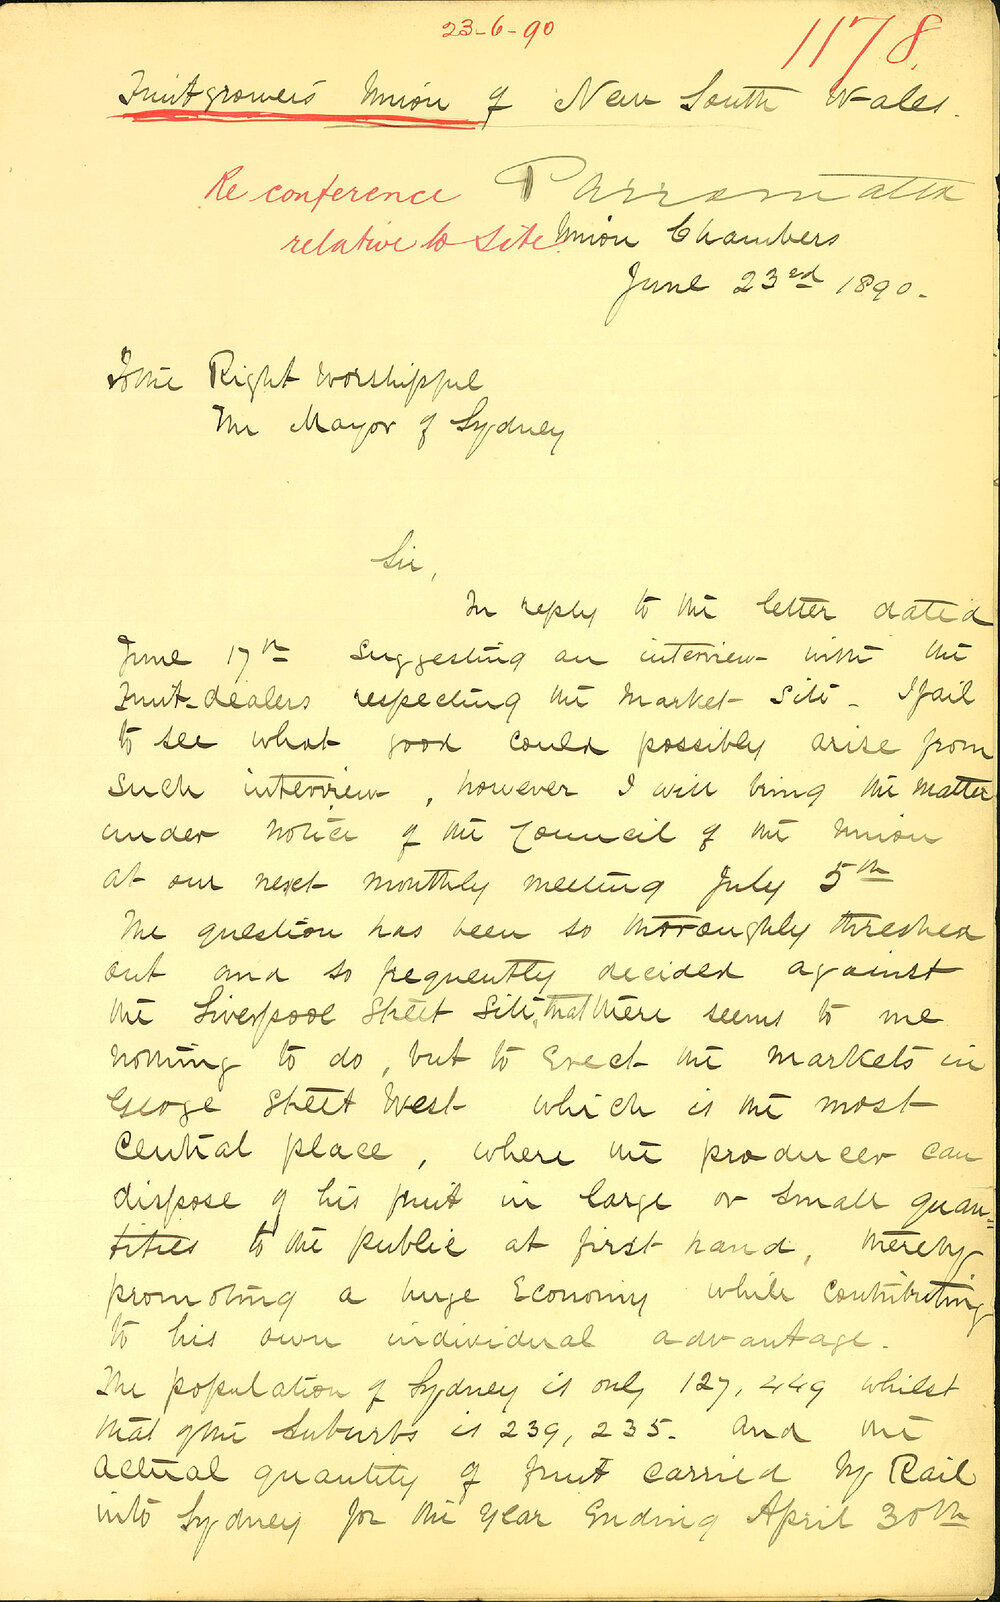 23-6-90
1178.
Fruitgrowers Union of New South Wales.
Re conference Parramatta
relative to Site Union Chambers
June 23rd 1890.
To the Right Worshipful
The Mayor of Sydney
Sir,
In reply to the letter dated
June 17th suggesting an interview with the
Fruit-dealers respecting the Market Site - I fail
to see what good could possibly arise from
such interview, however I will bring the matter
under notice of the Council of the Union
at our next monthly meeting July 5th
The question has been so thoroughly threshed
out and so frequently decided against
the Liverpool Street Site, that there seems to me
nothing to do, but to Erect the markets in
George Street West which is the most
Central place, where the producer can
dispose of his fruit in large or small quan-
tities to the public at first hand, thereby
promoting a huge Economy while contributing
to his own individual advantage.
The population of Sydney is only 127,449 whilst
that of the Suburbs is 239,235. and the
actual quantity of fruit carried by Rail
into Sydney for the Year Ending April 30th